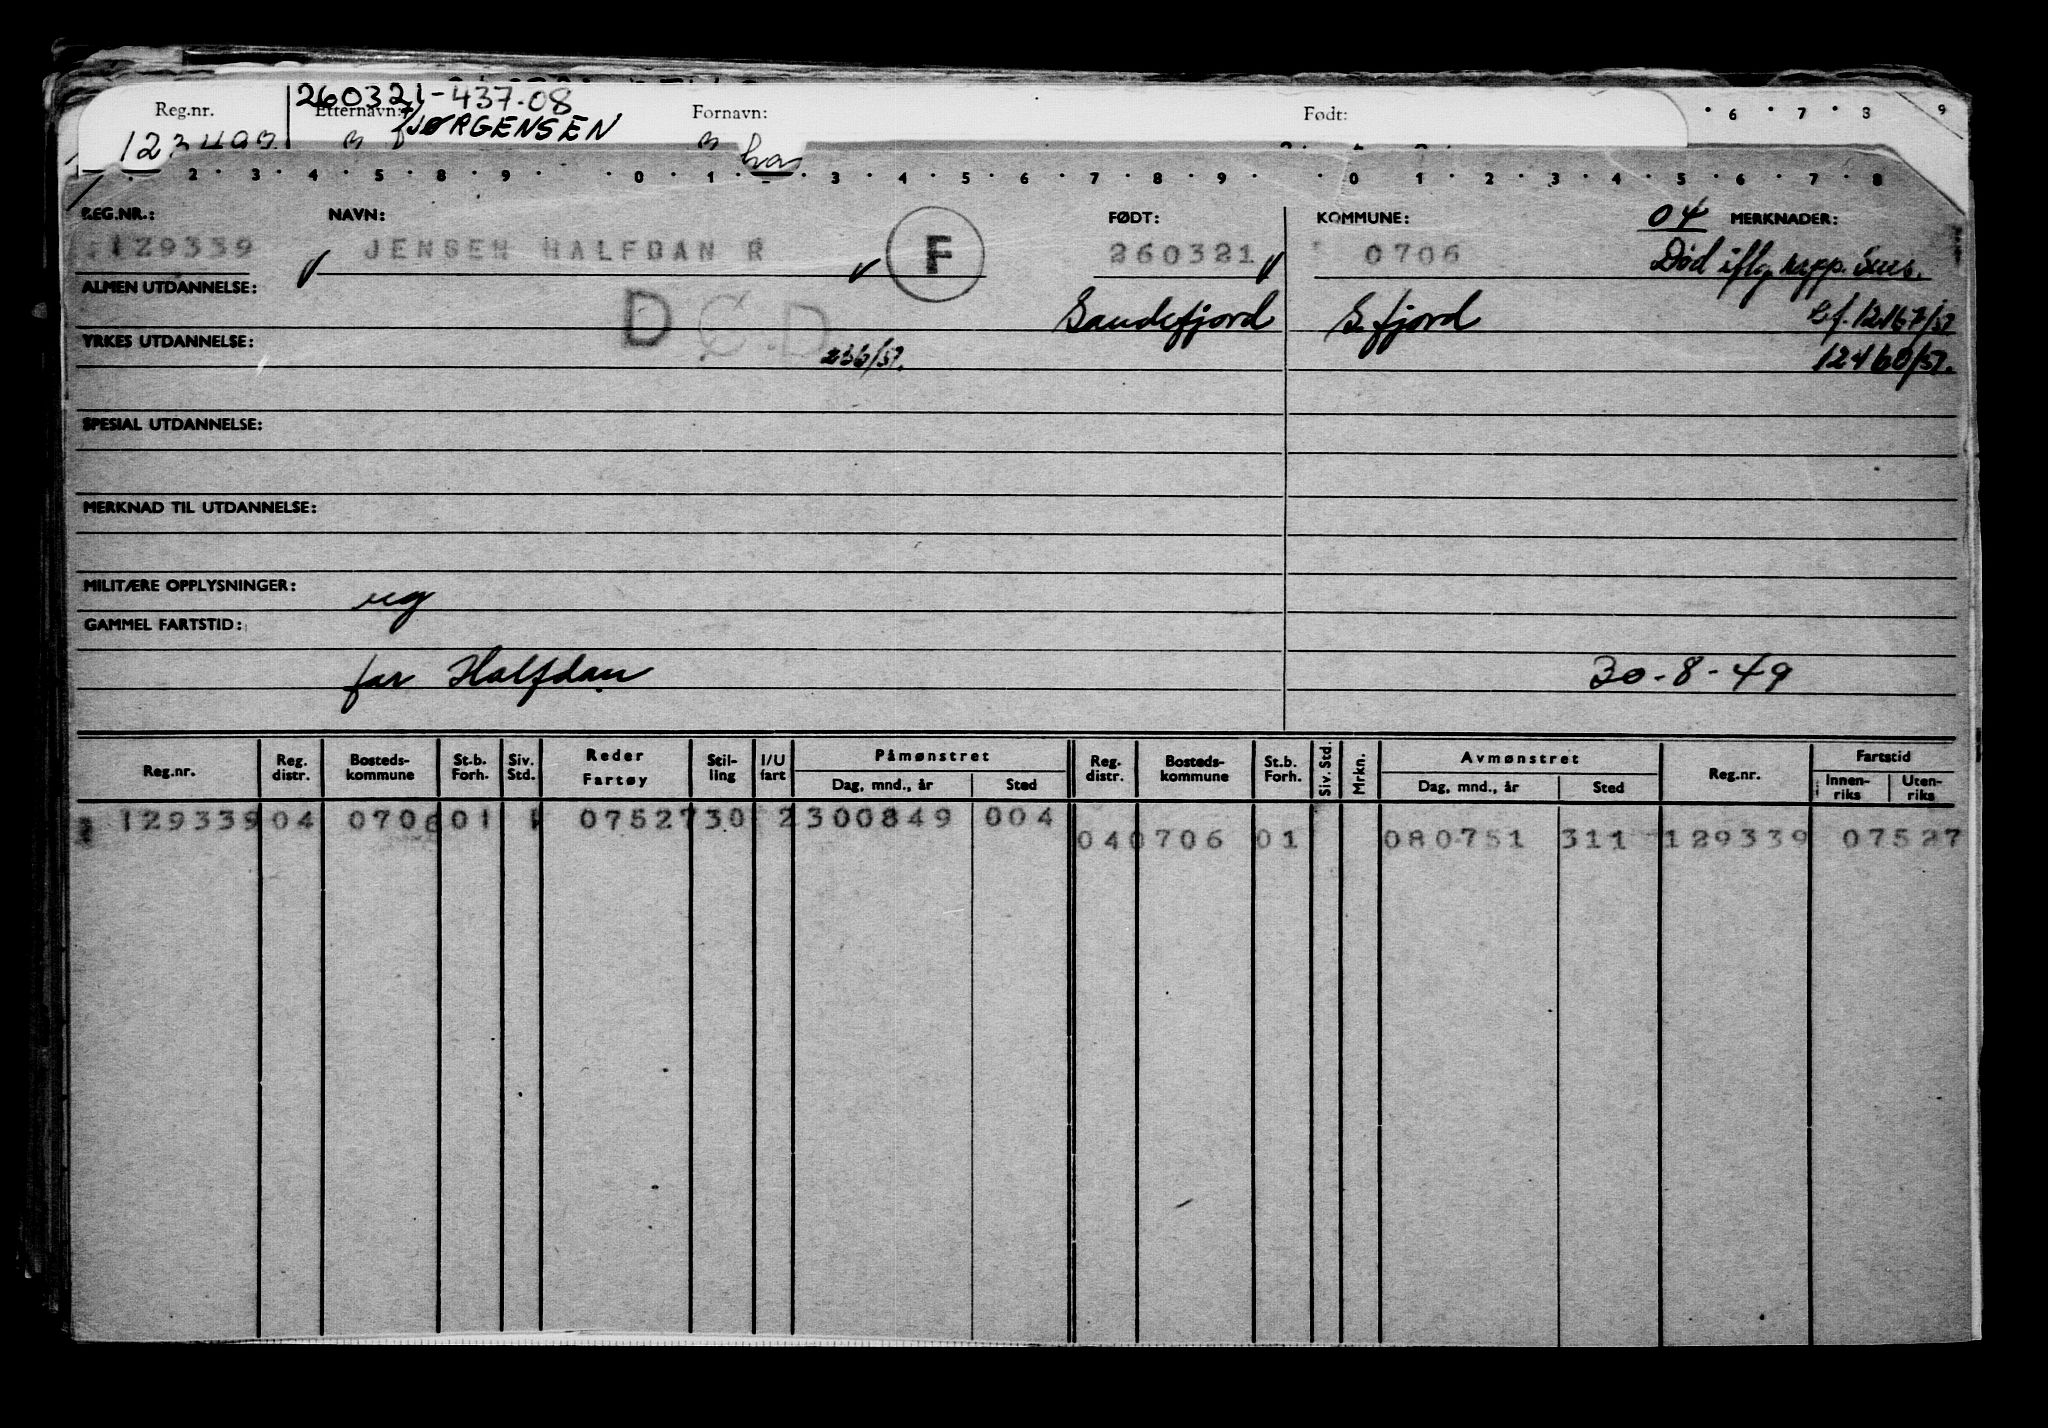 260321-437.08
Reg.nr. Etternavn: Fornavn: Født:
JØRGENSEN
6 7 8 9
2 3 4 5 8 9 0 1 2 3 4 5 6 7 8 9 0 1 2 3 4 5 6 7 8
REG.NR.: NAVN: FØDT: KOMMUNE: 04 MERKNADER:
129339 JENSEN HALFDAN R F 260321 0706 Død iflg. rapp.
ALMEN UTDANNELSE: DØD Sandefjord S.fjord 12167/51
YRKES UTDANNELSE: 12460/51.
SPESIAL UTDANNELSE:
MERKNAD TIL UTDANNELSE:
MILITÆRE OPPLYSNINGER: ug
GAMMEL FARTSTID:
far Halfdan 30-8-49
Reg.nr. Reg. distr. Bosteds-kommune St.b. Forh. Siv. Std. Reder Fartøy Stil-ling I/U fart Påmønstret Dag, mnd., år Sted Reg. distr. Bosteds-kommune St.b. Forh. Siv. Std. Mrkn. Avmønstret Dag, mnd., år Sted Reg.nr. Fartstid Innen-riks Uten-riks
129339 04 0706 01 1 07527 30 2 300849 004
04 0706 01 080751 311 129339 07527